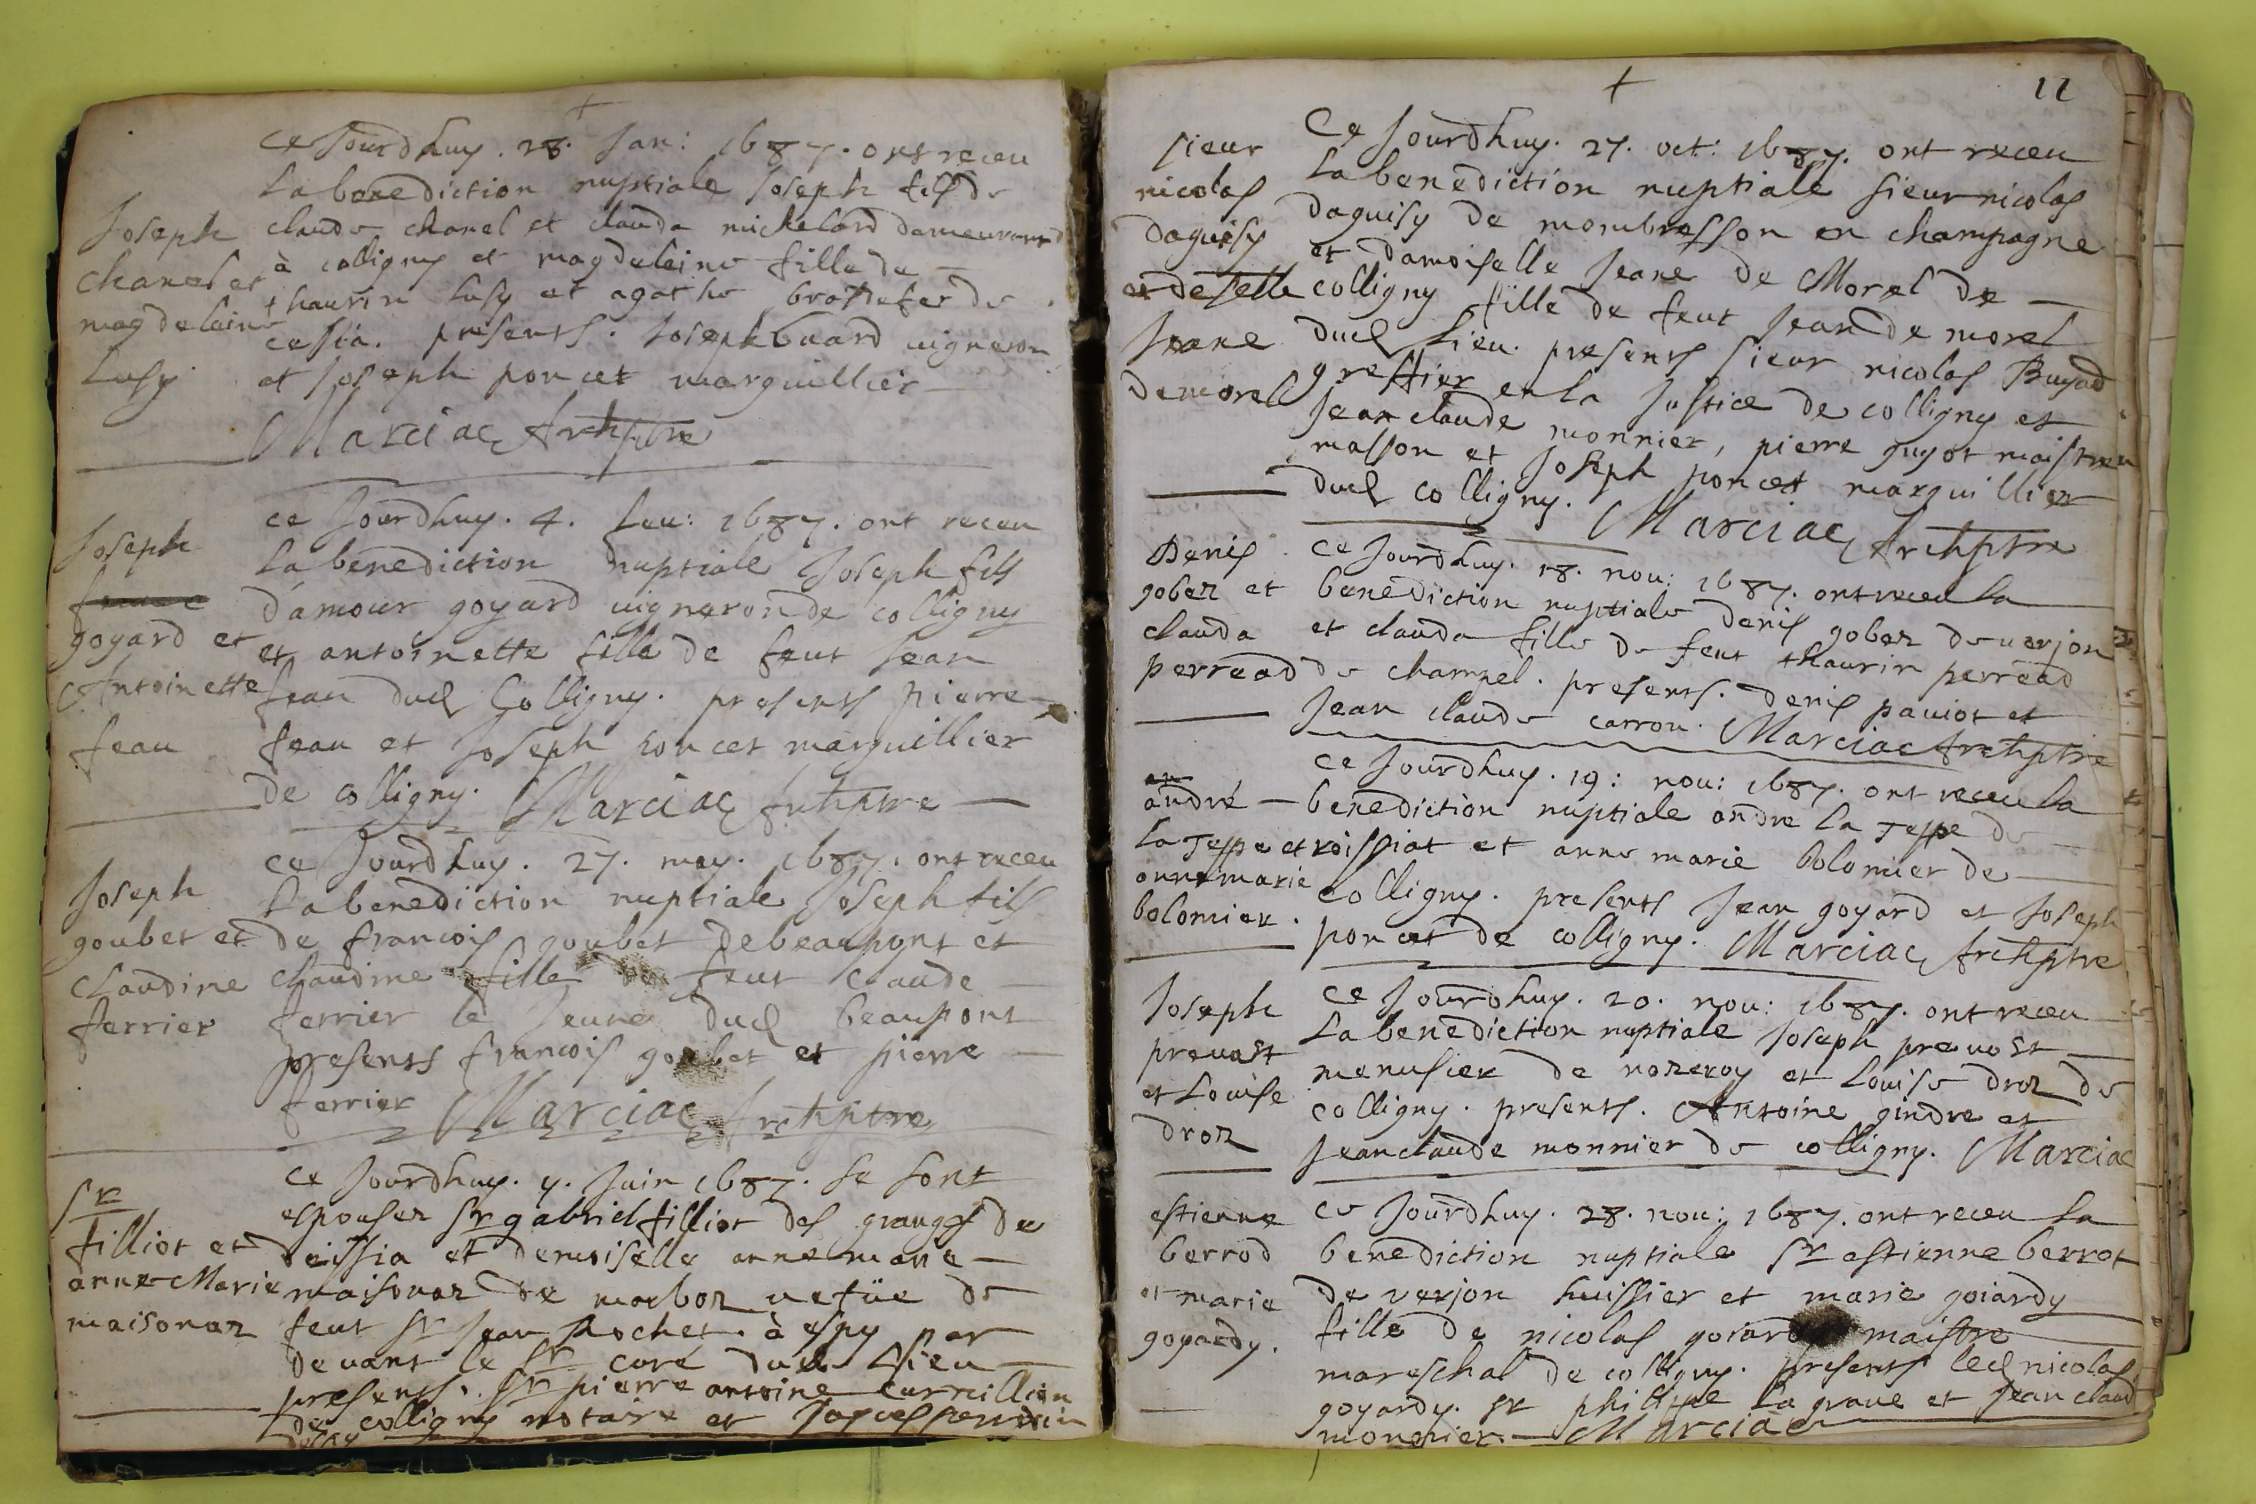 ce Jourdhuy. 28. Jan: 1687. ont receu
La benediction nuptiale Joseph fils de
Joseph
claude chanel et clauda michelard demeurant
chanel et
à colligny et magdelaine fille de
magdelaine
thaurin Lusy et agathe de
Lusy
cessia. presents. Joseph buard uigneron
et Joseph poncet marguillier
Marciac Archiptre
ce Jourdhuy. 4. feu: 1687. ont receu
Joseph
La benediction nuptiale Joseph fils
d'amour goyard uigneron de colligny
goyard et
et antoinette fille de feut Jean
Antoinette
feau dud Colligny. presents pierre
feau
feau et Joseph poncet marguillier
de colligny. Marciac Archiptre
ce Jourdhuy. 27. may. 1687. ont receu
Joseph
La benediction nuptiale Joseph fils
goubet et
de francois goubet de beaupont et
Claudine
claudine fille de feut claude
ferrier
ferrier le Jeune dud beaupont
presents francois goubet et pierre
ferrier Marciac Archiptre
ce Jourdhuy. y. Juin 1687. se sont
Sr
espousez Sr gabriel filliot des granges de
filliot et
et demoiselle anne marie
anne Marie
maisonaz de marboz uefüe de
maisonaz
feut Sr Jean Rochet. à espy par
deuant le Sr curé dud Lieu
presents. Sr pierre antoine
de colligny notaire et Jaques
11
Ce Jourdhuy. 27. oct: 1687. ont receu
sieur
La benediction nuptiale sieur nicolas
nicolas
daguisy de mombresson en champagne
daguisy
et damoiselle Jeane de Morel de
et deselle
colligny fille de feut Jean de morel
Jeane
dud Lieu. presents sieur nicolas Buyad
demorel
greffier en la Justice de colligny et
Jean claude monnier, pierre guyot maistre
masson et Joseph poncet marguillier
dud colligny. Marciac Archiptre
Denis
ce Jourdhuy. 18. nou: 1687. ont receu la
gobez et
benediction nuptiale denis gobez de uerjon
clauda
et clauda fille de feut thaurin perread
perread
de charnel. presents. denis pauiot et
Jean claude carron. Marciac Archiptre
ce Jourdhuy. 19: nou: 1687. ont receu la
andré
benediction nuptiale andre la Teppe de
La Teppe et
roissiat et anne marie bolomier de
anne marie
colligny. presents Jean goyard et Joseph
bolomier.
poncet de colligny. Marciac Archiptre
Joseph
ce Jourdhuy. 20. nou: 1687. ont receu
preuost
La benediction nuptiale Joseph preuost
et Louise
menusier de nozeroy et Louise droz de
droz
colligny. presents. Antoine gindre et
Jean claude monnier de colligny. Marciac
estienne
ce Jourdhuy. 28. nou: 1687. ont receu la
berrod
benediction nuptiale Sr estienne berrot
et marie
de verjon huissier et marie goiardy
goyardy.
fille de nicolas goiardy maistre
mareschal de colligny. presents led nicolas
goyardy. Sr philippe La graue et Jean claud
monnier. Marciac